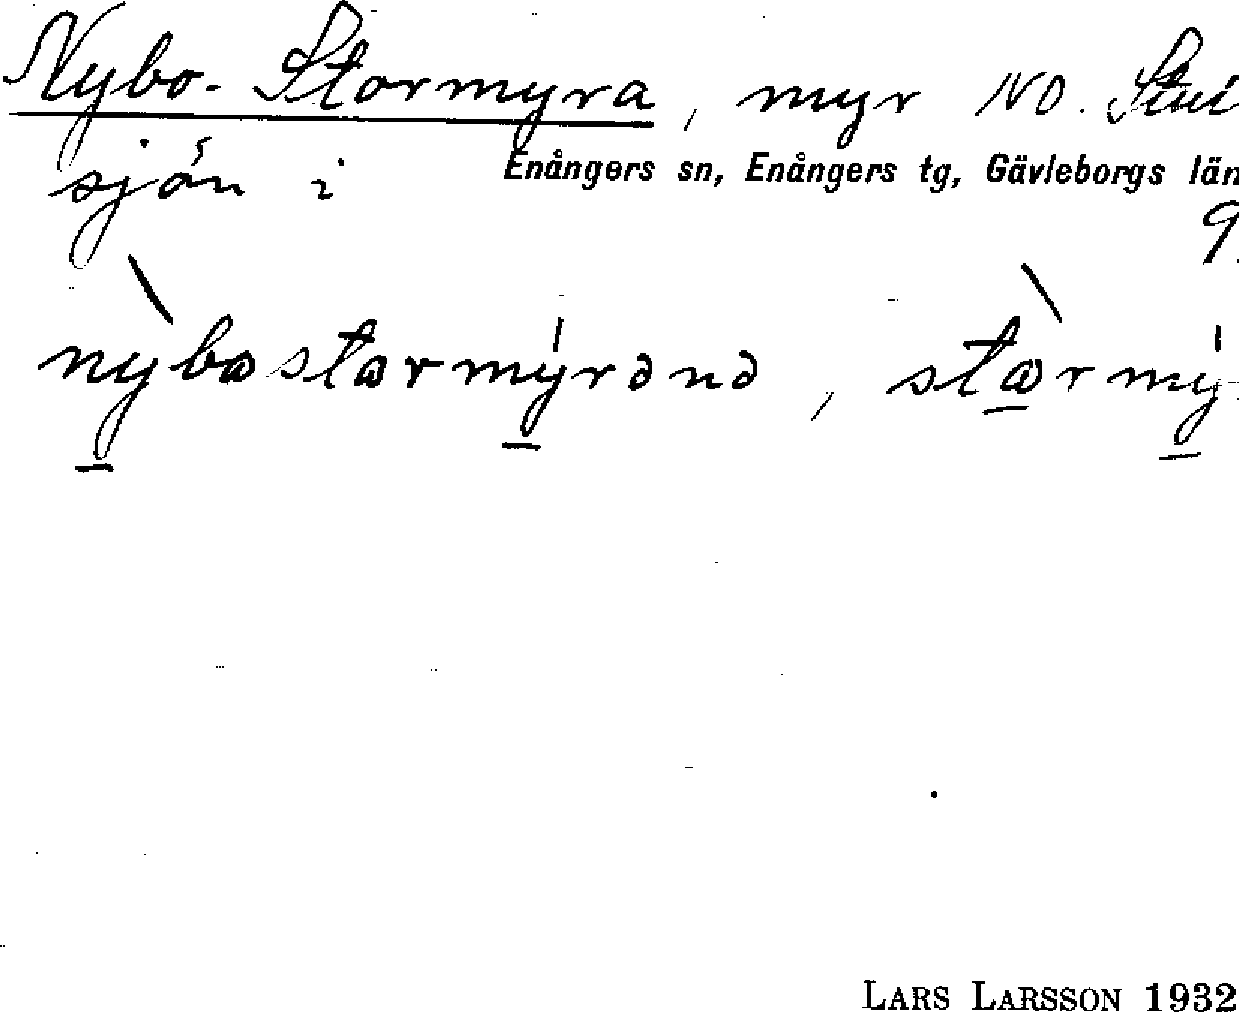 Nybo-Stormyra, myr NO.
sjön i Enångers sn, Enångers tg, Gävleborgs län
9.
nỳbɷstɷrmýrənə, stɷ̀rmý-
LARS LARSSON 1932